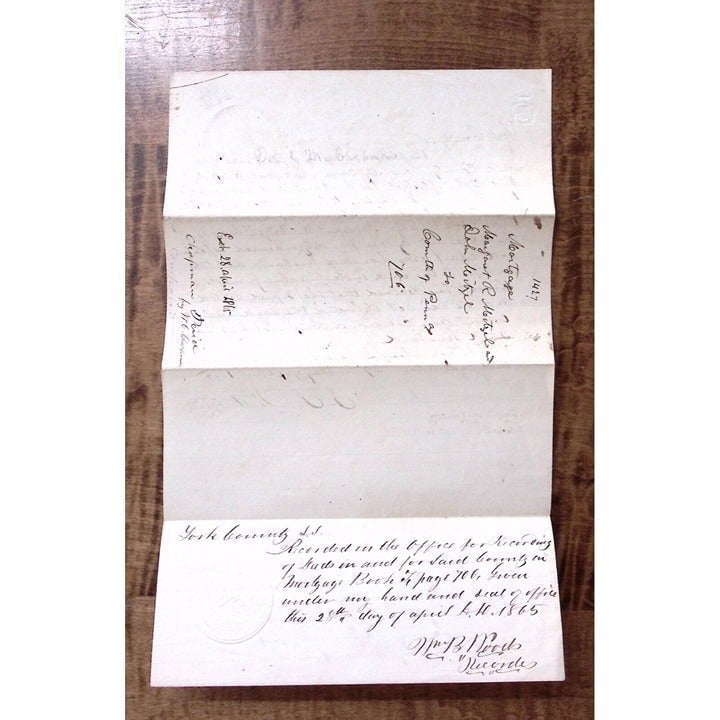 1427
Mortgage
Margaret R. Meitzel and
John Meitzel
to
Comth of Penn a
706
Ent. 28. april 1865
Chapman Price
by
York County S.S.
Recorded in the Office for Recording
of Deeds in and for Said County in
Mortgage Book page 706, Given
under my hand and seal of office
this 28th day of april A.D. 1865
Wm B. Woods
Recorder